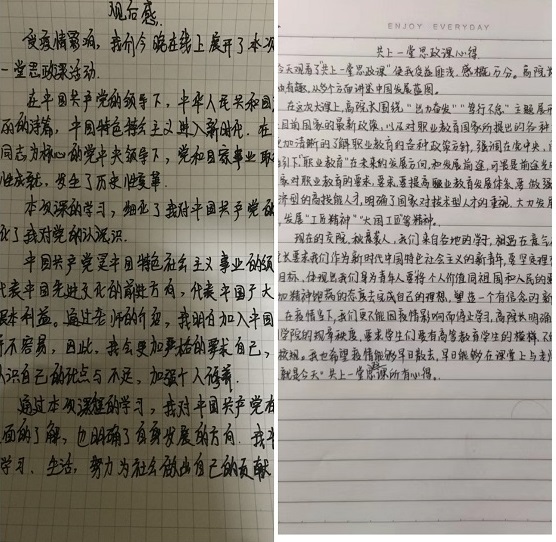 观后感.
受疫情影响, 我们今晚在线上展开了本次
一堂思政课活动.
在中国共产党的领导下, 中华人民共和国
丽的诗篇, 中国特色社会主义进入新时代. 在
同志为核心的党中央领导下, 党和国家事业取
性成就, 发生了历史性变革.
本次课的学习, 细化了我对中国共产党的
化了我对党的认识.
中国共产党是中国特色社会主义事业的领
代表中国先进文化的前进方向, 代表中国广大
根本利益. 通过老师的介绍, 我明白加入中国
所不容易, 因此, 我会更加严格的要求自己,
认识自己的优点与不足, 加强个人修养.
通过本次课程的学习, 我对中国共产党有
面的了解, 也明确了自身发展的方向. 我
学习. 生活, 努力为社会做出自己的贡献
ENJOY EVERYDAY
共上一堂思政课心得
今天观看了"共上一堂思政课"使我受益匪浅, 感概万分. 高院
由有趣, 从多个方面讲述中国发展蓝图.
在这次大课上, 高院长围绕, "出力奋发" "笃行不怠" 主题展
目前国家的最新政策, 以及对职业教育国家所提出的各种
更加清晰的了解职业教育的各种政策方针, 强调在党中央,
引下"职业教育"在未来的发展方向, 和发展前途, 可谓是前途
家对职业教育的要求, 要求要提高职业教育发展体系, 做强
新型的高技能人才, 明确了国家对技术型人才的重视. 大力发
, 发展"工匠精神" "大国工匠"等精神.
现在的交院, 桃李聚人, 我们来自各地的学子, 相遇在意气
长要求我们作为新时代中国特色社会主义的新青年, 要坚定理
目标, 体现出我们身为青年人要将个人价值同祖国和人民的
加精神饱满的态度去完成自己的理想, 塑造一个有信念的新
在疫情下, 我们更不能因疫情影响而停止学习, 高院长明确
学院的规章秩序, 要求学生们要有高等教育学生的模样, 不
被规. 我也希望疫情能够早日散去, 早日能够在课堂上与老
就是今天"共上一堂思政课"所有心得.